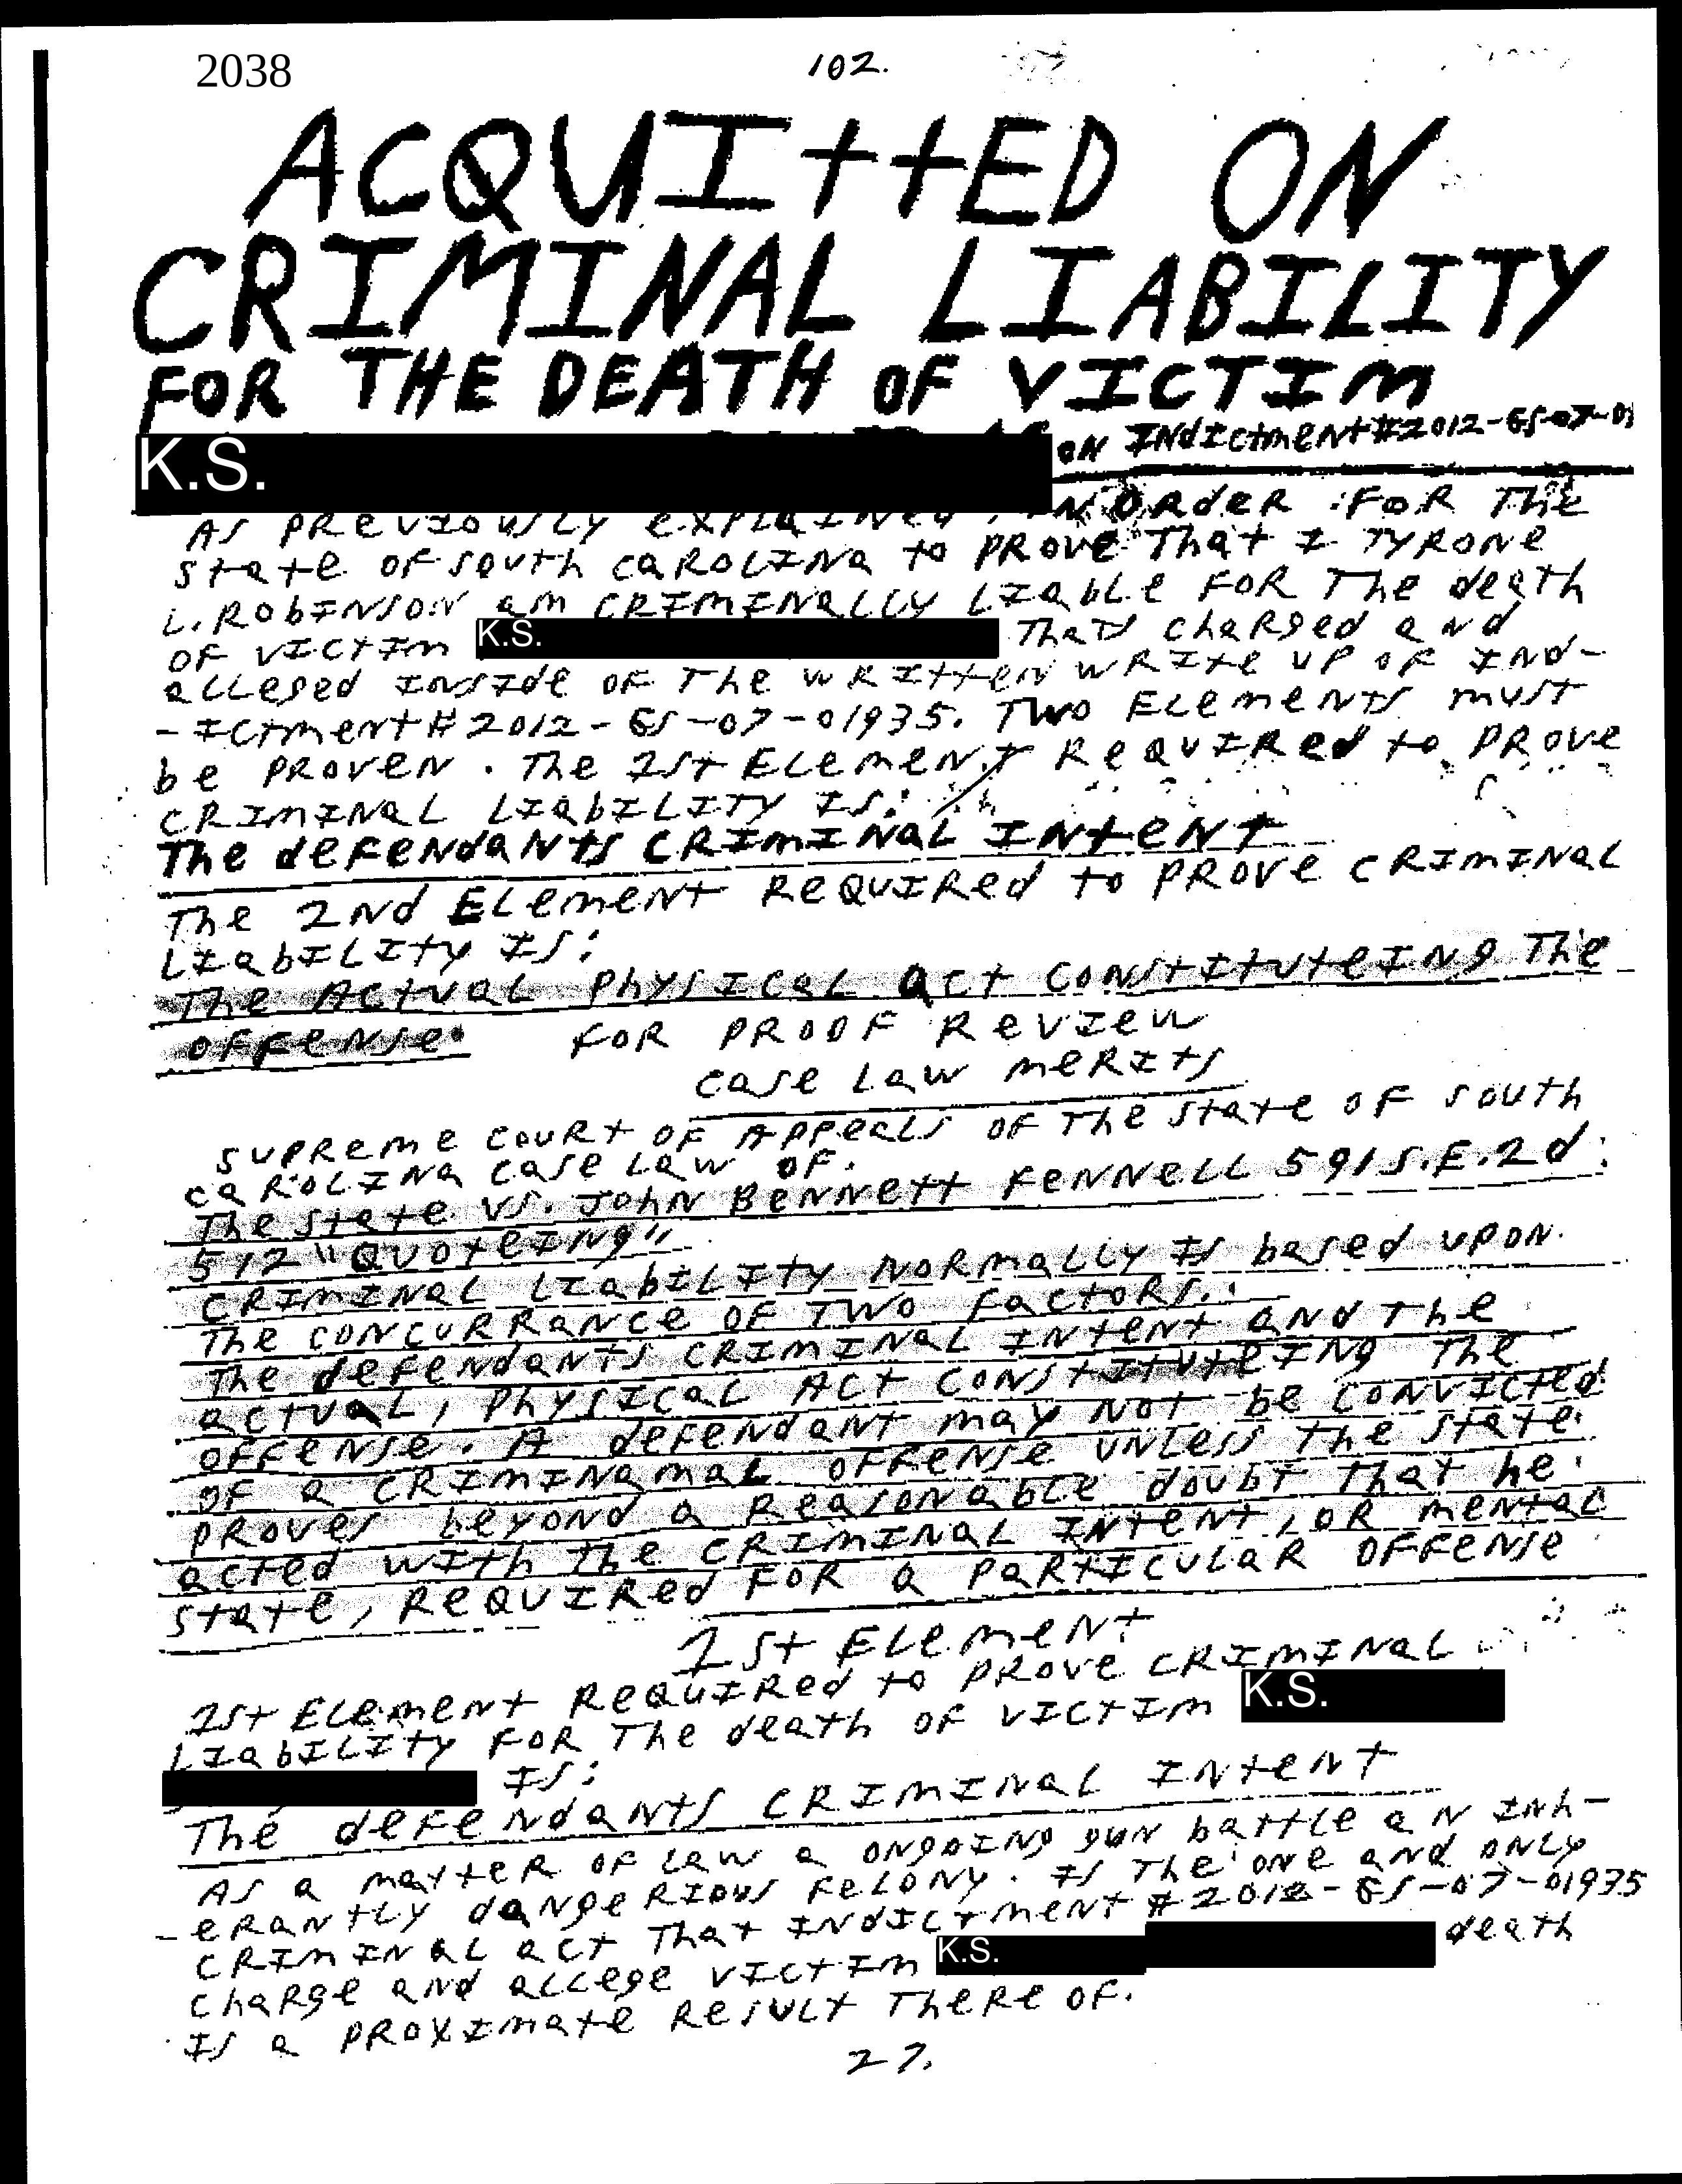 2038
102.
ACQUITTED ON
CRIMINAL LIABILITY
FOR THE DEATH OF VICTIM
K.S. ON INdIctmeNt#2012-GS-07-01
AS PReVIOUSLY eXPLaINed, IN ORdeR FOR The
State OF SOUth CaROLINa to PROVe That I TYRONe
L. RObINSON am CRIMINaLLY LIabLe FOR The death
OF VICTIm K.S. ThatS ChaRged aNd
aLLeged INSIde OF The WRItteN WRIte UP OF INd-
-ICtmeNt#2012-GS-07-01935. TWO ELemeNtS mUSt
be PROVeN. The 1St ELemeNt ReQUIRed to PROVe
CRIMINaL LIabILITY IS:
The deFeNdaNtS CRIMINaL INteNt
The 2Nd ELemeNt ReQUIRed to PROVe CRIMINaL
LIabILIty IS:
The ACtUaL PhYSICaL act CONStItUteINg The
OFFeNSe. FOR PROOF ReVIeW
CaSe LaW meRItS
SUPReme COURt OF APPeaLS OF The State OF SOUth
CaROLINa CaSe LaW OF.
The State VS. JOhN BeNNett FeNNeLL 591 S.E.2d.
512 "QUOteINg"
CRIMINaL LIabILIty NORmaLLY IS baSed UPON.
The CONCURRaNCe OF TWO FaCtORS.:
The deFeNdaNtS CRIMINaL INteNt aNd The
aCtUaL, PhYSICaL ACt CONStItUteINg The
OFFeNSe. A deFeNdaNt maY NOt be CONVICted
OF a CRIMINamaL OFFeNSe UNLeSS The State.
PROVeS beYONd a ReaSONabLe doUbt That he
aCted WIth the CRIMINaL INteNt, OR meNtaL
State, ReQUIRed FOR a PaRtICULaR OFFeNSe
1St ELemeNt
1St ELemeNt ReQUIRed to PROVe CRIMINaL
LIabILIty FOR The death OF VICTIm K.S.
IS:
The deFeNdaNtS CRIMINaL INteNt
AS a matteR OF LaW a ONgOINg gUN battLe aN INh-
-eRaNtLY daNgeRIOUS FeLONY. IS The ONe aNd ONLY
CRIMINaL aCt That INdICtmeNt #2012-GS-07-01935
ChaRge aNd aLLege VICTIm K.S. death
IS a PROXImate ReSULt TheRe OF.
27.